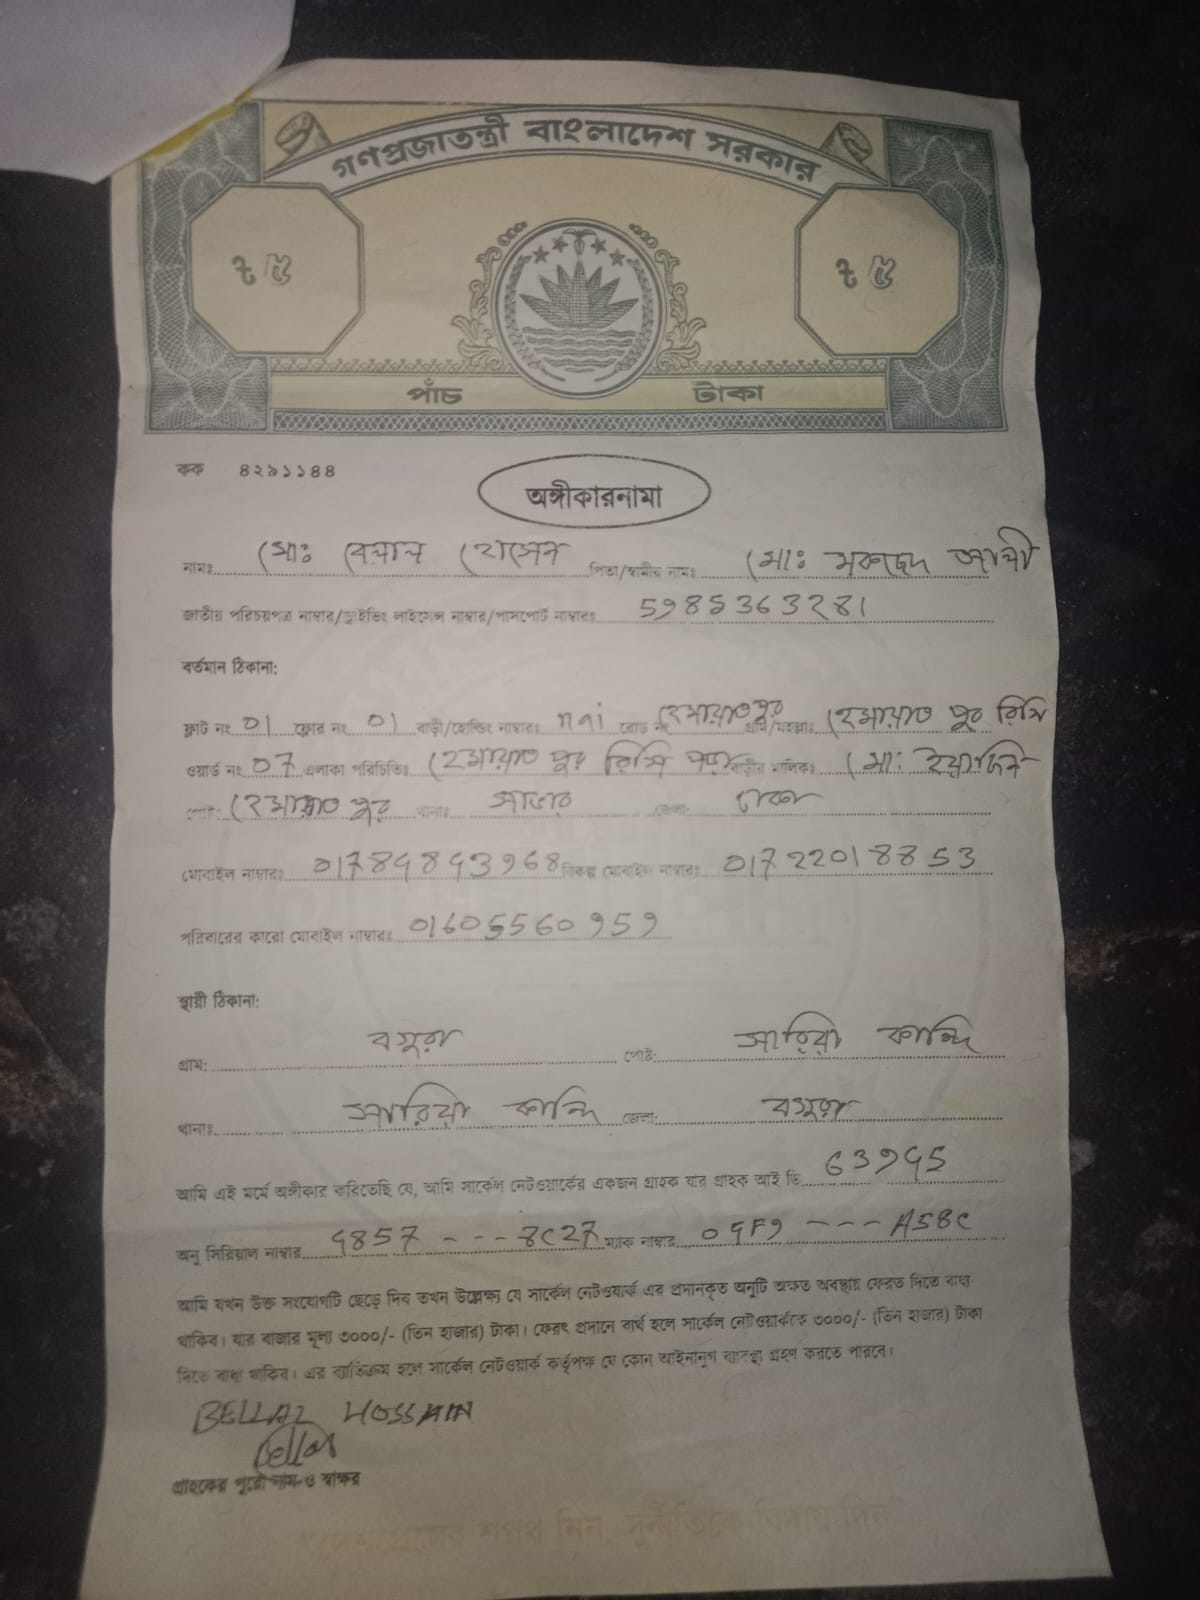 গণপ্রজাতন্ত্রী বাংলাদেশ সরকার
৳ ৫ ৳ ৫
পাঁচ টাকা
কক ৪২৯১১৪৪
অঙ্গীকারনামা
নামঃ মোঃ বেলাল হোসেন পিতা/স্বামীর নামঃ মোঃ মকছেদ আলী
জাতীয় পরিচয়পত্র নাম্বার/ড্রাইভিং লাইসেন্স নাম্বার/পাসপোর্ট নাম্বারঃ 5985363281
বর্তমান ঠিকানা:
ফ্লাট নং 01 ফ্লোর নং 01 বাড়ী/হোল্ডিং নাম্বারঃ nai রোড নং হেমায়েতপুর গ্রাম/মহল্লাঃ হেমায়েত পুর রিসি
ওয়ার্ড নং 07 এলাকা পরিচিতিঃ হেমায়েত পুর রিসি পাড়া বাড়ীর মালিকঃ মো:
পোষ্ট: হেমায়েত পুর থানাঃ সাভার জেলা: ঢাকা
মোবাইল নাম্বারঃ 01784843968 বিকল্প মোবাইল নাম্বারঃ 01722018853
পরিবারের কারো মোবাইল নাম্বারঃ 01605560959
স্থায়ী ঠিকানা:
গ্রাম: বগুরা পোষ্ট: সারিয়া কান্দি
থানাঃ সারিয়া কান্দি জেলা: বগুরা
আমি এই মর্মে অঙ্গীকার করিতেছি যে, আমি সার্কেল নেটওয়ার্কের একজন গ্রাহক যার গ্রাহক আই ডি 63945
অনু সিরিয়াল নাম্বার 4857 --- 8C27 ম্যাক নাম্বার 04F9 --- A58C
আমি যখন উক্ত সংযোগটি ছেড়ে দিব তখন উল্লেক্ষ্য যে সার্কেল নেটওয়ার্ক এর প্রদানকৃত অনুটি অক্ষত অবস্থায় ফেরত দিতে বাধ্য
থাকিব। যার বাজার মূল্য ৩০০০/- (তিন হাজার) টাকা। ফেরৎ প্রদানে ব্যর্থ হলে সার্কেল নেটওয়ার্ককে ৩০০০/- (তিন হাজার) টাকা
দিতে বাধ্য থাকিব। এর ব্যতিক্রম হলে সার্কেল নেটওয়ার্ক কর্তৃপক্ষ যে কোন আইনানুগ ব্যবস্থা গ্রহণ করতে পারবে।
BELLAL HOSSAIN
Bellal
গ্রাহকের পুরো নাম ও স্বাক্ষর
দেশপ্রেমের শপথ নিন, দুর্নীতিকে বিদায় দিন